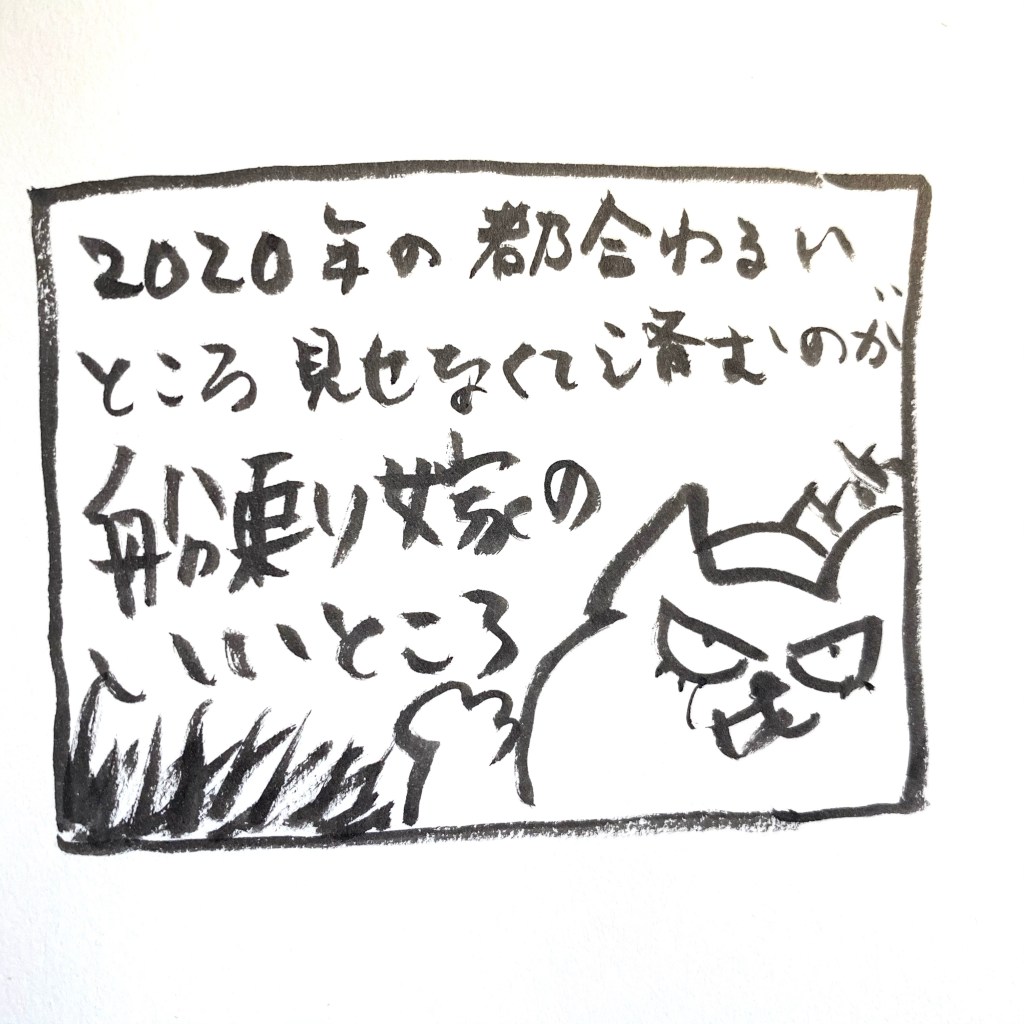 2020年の都合わるい
ところ見せなくて済むのが
船乗り嫁の
いいところ